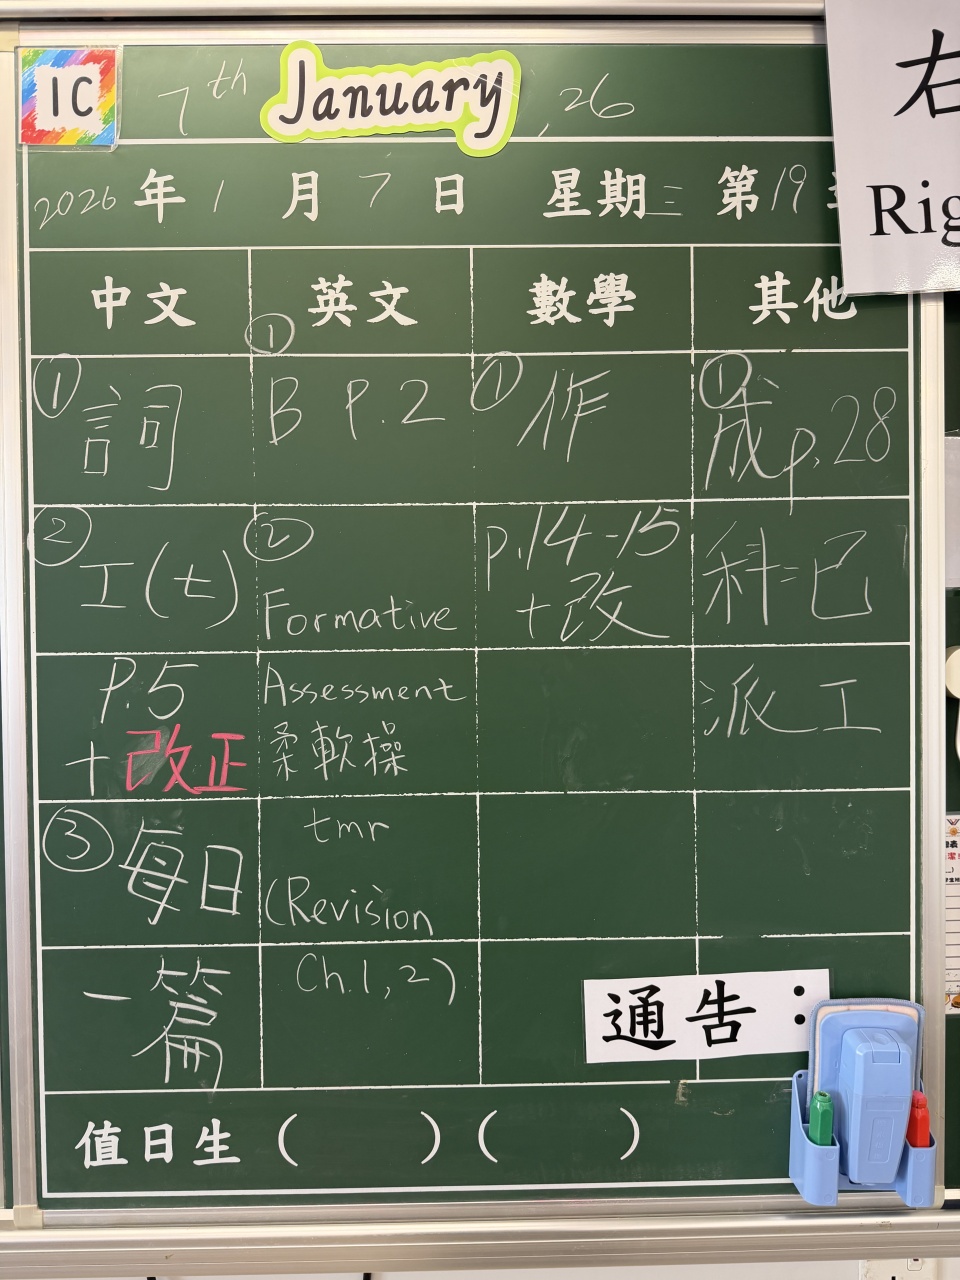 1C
7th January, 26
2026 年 1 月 7 日 星期三 第 19
右
Rig
中文 英文 數學 其他
① 詞
② 工(七)
P.5
+改正
③ 每日
一篇
①
B P.2
②
Formative
Assessment
柔軟操
tmr
(Revision
Ch.1, 2)
① 作
p.14-15
+改
① 成 p.28
科=已
派工
通告：
值日生 ( ) ( )